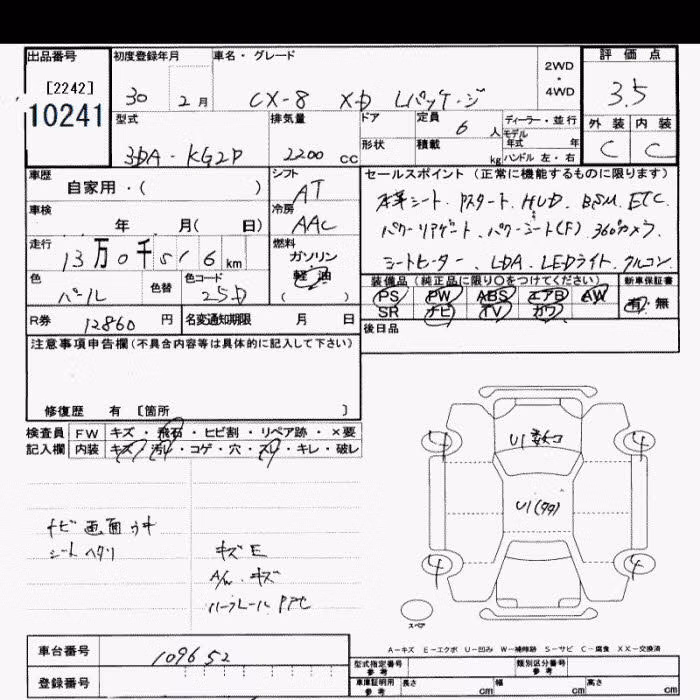 出品番号 初度登録年月 車名・グレード 2WD・4WD 評価点
[2242] 10241 30 2月 CX-8 XD Lパッケージ 3.5
型式 排気量 ドア 定員 6人 ディーラー・並行 外装 内装
モデル年式 年
3DA-KG2P 2200cc 形状 積載 kg ハンドル 左・右 C C
車歴 シフト セールスポイント(正常に機能するものに限ります)
自家用・( ) AT 本革シート、Pスタート、HUD、BSM、ETC
車検 冷房 パワーリアゲート、パワーシート(F) 360°カメラ
年 月( 日) AAC シートヒーター、LDA、LEDライト、クルコン
走行 燃料
13万0千516km ガソリン
軽油
( )
色 色替 色コード 装備品(純正品に限り○をつけてください) 新車保証書
パール 25D PS PW ABS エアB AW 有・無
SR ナビ TV カワ
R券 12860円 名変通知期限 月 日 後日品
注意事項申告欄(不具合内容等は具体的に記入して下さい)
修復歴 有 [箇所 ]
検査員 FW キズ・飛石・ヒビ割・リペア跡・×要
記入欄 内装 キズ・汚レ・コゲ・穴・スレ・キレ・破レ
ナビ画面ウキ
シートヘタリ
キズE
A/W キズ
U1
U1(タタ)
4 4
4 4
スペア
A-キズ E-エクボ U-凹み W-補修跡 S-サビ C-腐食 XX-交換済
車台番号 109652
登録番号
型式指定番号 参考 類別区分番号 参考
車庫証明用 参考 長さ cm 幅 cm 高さ cm